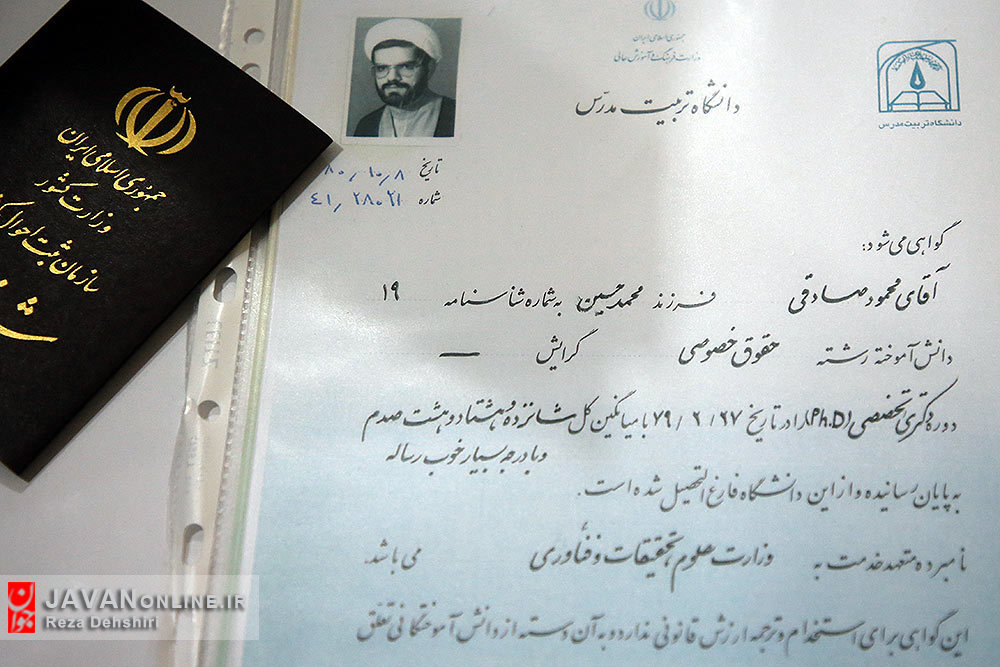 جمهوری اسلامی ایران
وزارت کشور
سازمان ثبت احوال
جمهوری اسلامی ایران
وزارت فرهنگ و آموزش عالی
دانشگاه تربیت مدرس
دانشگاه تربیت مدرس
تاریخ ۸۰/۱۰/۸
شماره ۴۱/۲۸۰۲۱
گواهی می شود:
آقای محمود صادقی فرزند محمدحسین به شماره شناسنامه ۱۹
دانش آموخته رشته حقوق خصوصی گرایش —
دوره دکتری تخصصی (Ph.D) را در تاریخ ۷۹/۲/۲۷ با میانگین کل شانزده و هشتاد و هشت صدم
و با درجه بسیار خوب رساله
به پایان رسانیده و از این دانشگاه فارغ التحصیل شده است.
نامبرده متعهد خدمت به وزارت علوم تحقیقات و فنآوری می باشد.
این گواهی برای استخدام و ترجمه ارزش قانونی ندارد و به آن دسته از دانش آموختگانی تعلق
جوان
JAVANONLINE.IR
Reza Dehshiri